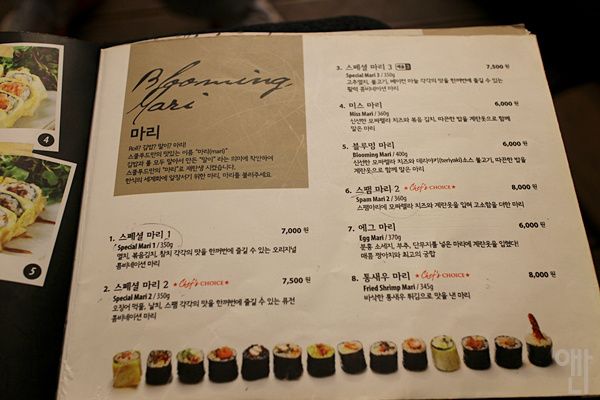 Blooming
Mari
마리
Roll? 김밥? 말이? 마리!
스쿨푸드만의 맛있는 이름 "마리(mari)"
김밥과 롤 모두 말아서 만든 "말이" 라는 의미에 착안하여
스쿨푸드만의 "마리"로 재탄생 시켰습니다.
한식의 세계화에 앞장서기 위한 마리, 마리를 불러주세요.
4
5
1. 스페셜 마리 1 7,000 원
Special Mari 1 / 350g
멸치, 볶음김치, 참치 각각의 맛을 한꺼번에 즐길 수 있는 오리지널
콤비네이션 마리
2. 스페셜 마리 2 ★ Chef's CHOICE ★ 7,500 원
Special Mari 2 / 350g
오징어 먹물, 날치, 스팸 각각의 맛을 한꺼번에 즐길 수 있는 퓨전
콤비네이션 마리
3. 스페셜 마리 3 7,500 원
Special Mari 3 / 350g
고추멸치, 불고기, 베이컨 마늘 각각의 맛을 한꺼번에 즐길 수 있는
활력 콤비네이션 마리
4. 미스 마리 6,000 원
Miss Mari / 360g
신선한 모짜렐라 치즈와 볶음 김치, 따끈한 밥을 계란옷으로 함께
말은 마리
5. 블루밍 마리 6,000 원
Blooming Mari / 400g
신선한 모짜렐라 치즈와 데리야키(teriyaki)소스 불고기, 따끈한 밥을
계란옷으로 함께 말은 마리
6. 스팸 마리 2 ★ Chef's CHOICE ★ 8,000 원
Spam Mari 2 / 360g
스팸마리에 모짜렐라 치즈와 계란옷을 입혀 고소함을 더한 마리
7. 에그 마리 6,000 원
Egg Mari / 370g
분홍 소세지, 부추, 단무지를 넣은 마리에 계란옷을 입혔다!
매콤 짱아치와 최고의 궁합
8. 통새우 마리 ★ Chef's CHOICE ★ 8,000 원
Fried Shrimp Mari / 345g
바삭한 통새우 튀김으로 맛을 낸 마리